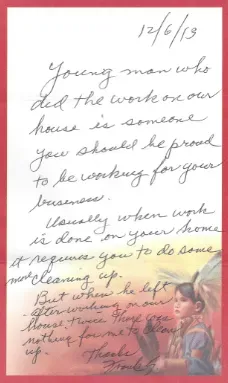 12/6/13
Young man who
did the work on our
house is someone
you should be proud
to be working for your
business.
Usually when work
is done on your home
it requires you to do some
more cleaning up.
But when he left
after working on our
house twice there was
nothing for me to clean
up.
Thanks